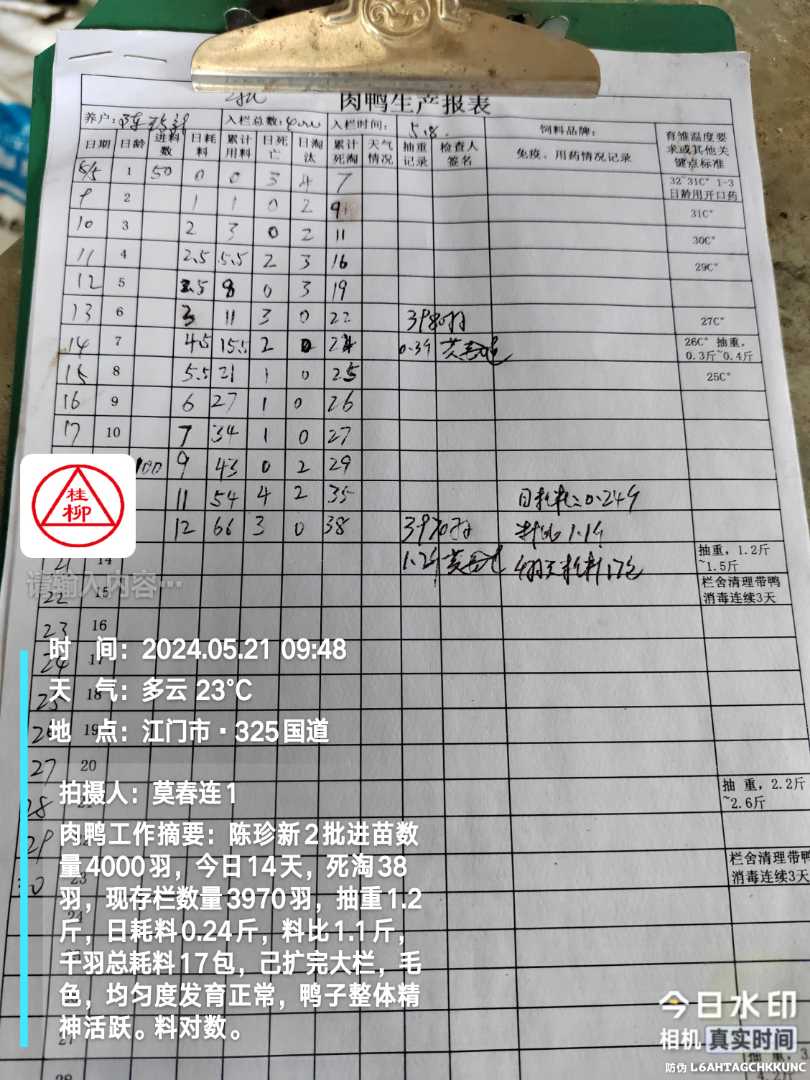 肉鸭生产报表
养户: 陈珍新 入栏总数: 4000 入栏时间: 5.8. 饲料品牌: 育雏温度要求或其他关键点标准
日期 日龄 进料数 日耗料 累计用料 日死亡 日淘汰 累计死淘 天气情况 抽重记录 检查人签名 免疫、用药情况记录
8/5 1 50 0 0 3 4 7 32~31C° 1-3日龄用开口药
9 2 1 1 0 2 9 31C°
10 3 2 3 0 2 11 30C°
11 4 2.5 5.5 2 3 16 29C°
12 5 2.5 8 0 3 19
13 6 3 11 3 0 22 3980羽 27C°
14 7 4.5 15.5 2 0 24 0.39 26C° 抽重,0.3斤~0.4斤
15 8 5.5 21 1 0 25 25C°
16 9 6 27 1 0 26
17 10 7 34 1 0 27
100 9 43 0 2 29
11 54 4 2 35 日耗料:0.249
12 66 3 0 38 3970羽 料比1.14
21 14 1.24 耗料17包 抽重,1.2斤~1.5斤
22 15 栏舍清理带鸭消毒连续3天
23 16
24 17
25 18
26 19
27 20
28 抽重,2.2斤~2.6斤
29
30 23 栏舍清理带鸭消毒连续3天
24
27
28
桂柳
请输入内容…
时 间:2024.05.21 09:48
天 气:多云 23℃
地 点:江门市·325国道
拍摄人:莫春连1
肉鸭工作摘要:陈珍新2批进苗数
量4000羽,今日14天,死淘38
羽,现存栏数量3970羽,抽重1.2
斤,日耗料0.24斤,料比1.1斤,
千羽总耗料17包,己扩完大栏,毛
色,均匀度发育正常,鸭子整体精
神活跃。料对数。
今日水印
相机 真实时间
防伪 L6AHTAGCHKKUNC